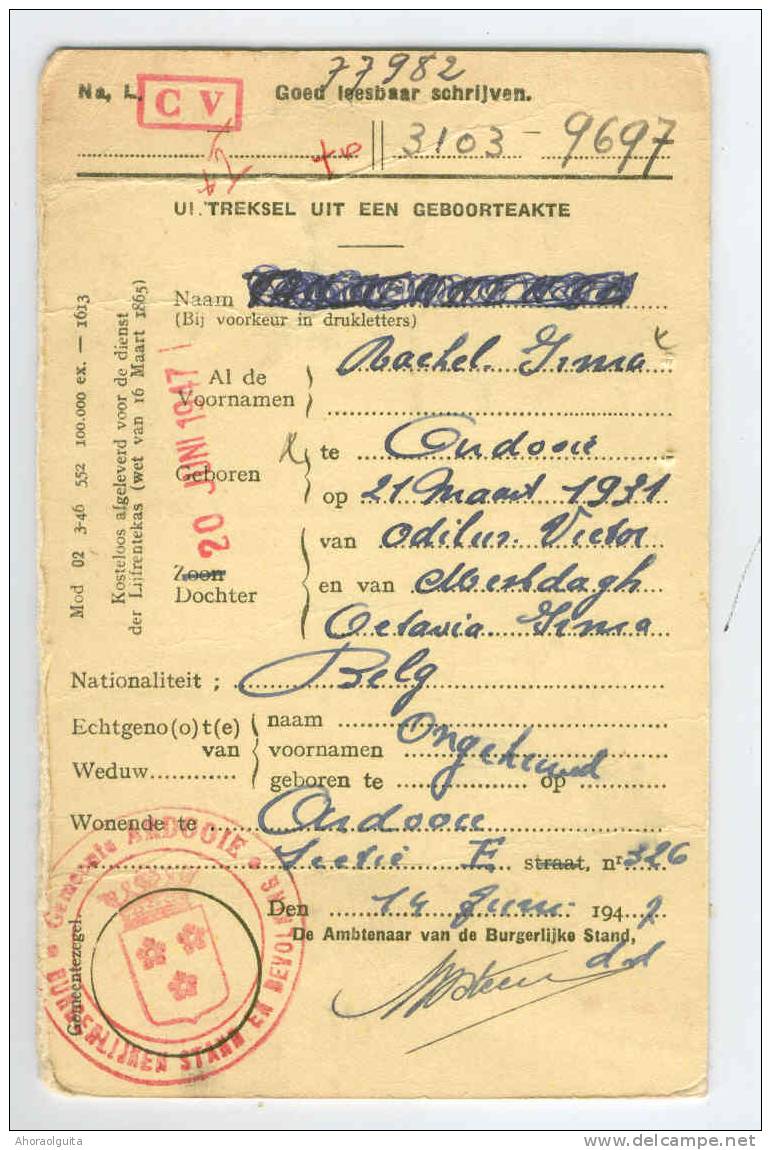 77982
Na, L. C V Goed leesbaar schrijven.
3103 - 9697
UITTREKSEL UIT EEN GEBOORTEAKTE
Naam
(Bij voorkeur in drukletters)
Rachel Irma
Al de
Voornamen
Geboren
te Ardooie
op 21 Maart 1931
20 JUNI 1947
Zoon
Dochter
van Odilus Victor
en van Mestdagh
Octavia Irma
Nationaliteit ; Belg
Echtgeno(o)t(e)
van
Weduw...........
naam
voornamen Ongehuwd
geboren te op
Wonende te Ardooie
Sectie E straat, nr 326
Den 14 Juni 1947
De Ambtenaar van de Burgerlijke Stand,
Mod 02 3-46 552 100.000 ex. — 1613
Kosteloos afgeleverd voor de dienst
der Lijfrentekas (wet van 16 Maart 1865)
Gemeentezegel.
Gemeente ARDOOIE
BURGERLIJKEN STAND EN BEVOLKING
Ahoraolguita
www.delcampe.net